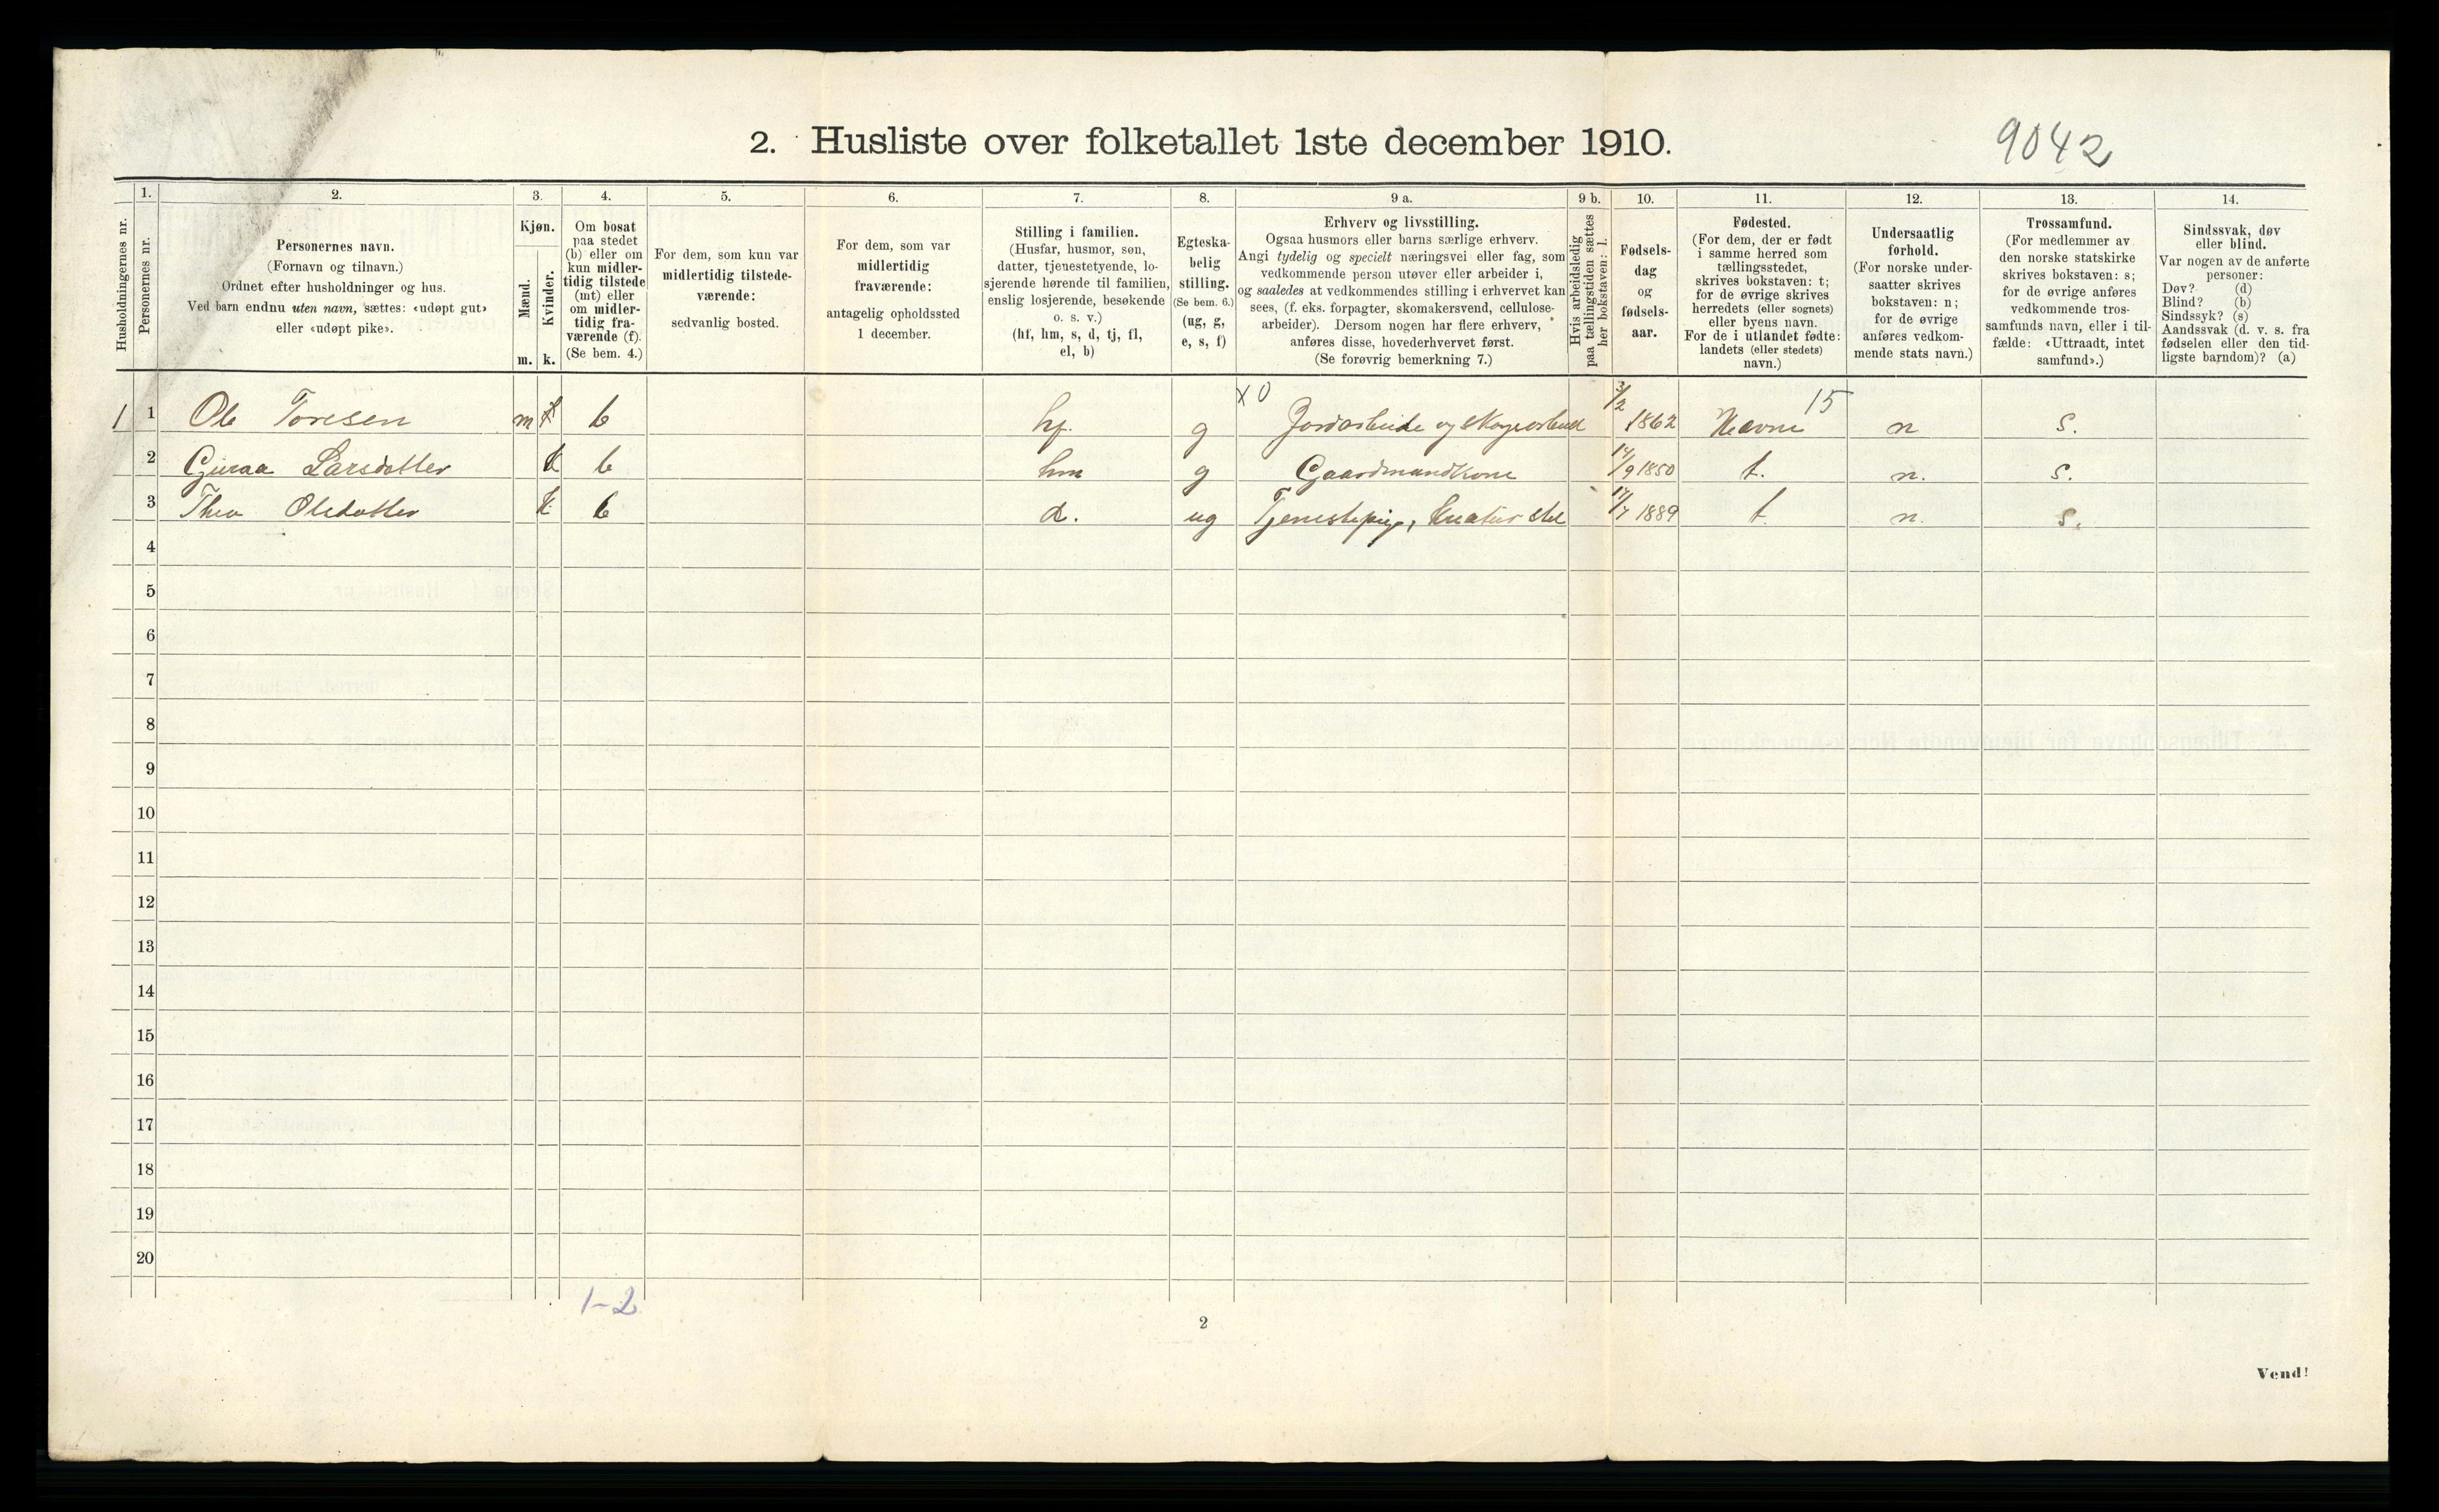 2. Husliste over folketallet 1ste december 1910.
9042
Husholdningernes nr.
1.
Personernes nr.
2.
Personernes navn.
(Fornavn og tilnavn.)
Ordnet efter husholdninger og hus.
Ved barn endnu uten navn, sættes: «udøpt gut»
eller «udøpt pike».
3.
Kjøn.
Mænd.
Kvinder.
m. k.
4.
Om bosat
paa stedet
(b) eller om
kun midler-
tidig tilstede
(mt) eller
om midler-
tidig fra-
værende (f).
(Se bem. 4.)
5.
For dem, som kun var
midlertidig tilstede-
værende:
sedvanlig bosted.
6.
For dem, som var
midlertidig
fraværende:
antagelig opholdssted
1 december.
7.
Stilling i familien.
(Husfar, husmor, søn,
datter, tjenestetyende, lo-
sjerende hørende til familien,
enslig losjerende, besøkende
o. s. v.)
(hf, hm, s, d, tj, fl,
el, b)
8.
Egteska-
belig
stilling.
(Se bem. 6.)
(ug, g,
e, s, f)
9 a.
Erhverv og livsstilling.
Ogsaa husmors eller barns særlige erhverv.
Angi tydelig og specielt næringsvei eller fag, som
vedkommende person utøver eller arbeider i,
og saaledes at vedkommendes stilling i erhvervet kan
sees, (f. eks. forpagter, skomakersvend, cellulose-
arbeider). Dersom nogen har flere erhverv,
anføres disse, hovederhvervet først.
(Se forøvrig bemerkning 7.)
9 b.
Hvis arbeidsledig
paa tællingstiden sættes
her bokstaven: l.
10.
Fødsels-
dag
og
fødsels-
aar.
11.
Fødested.
(For dem, der er født
i samme herred som
tællingsstedet,
skrives bokstaven: t;
for de øvrige skrives
herredets (eller sognets)
eller byens navn.
For de i utlandet fødte:
landets (eller stedets)
navn.)
12.
Undersaatlig
forhold.
(For norske under-
saatter skrives
bokstaven: n;
for de øvrige
anføres vedkom-
mende stats navn.)
13.
Trossamfund.
(For medlemmer av
den norske statskirke
skrives bokstaven: s;
for de øvrige anføres
vedkommende tros-
samfunds navn, eller i til-
fælde: «Uttraadt, intet
samfund».)
14.
Sindssvak, døv
eller blind.
Var nogen av de anførte
personer:
Døv? (d)
Blind? (b)
Sindssyk? (s)
Aandssvak (d. v. s. fra
fødselen eller den tid-
ligste barndom)? (a)
X 0 15
1 1 Ole Toresen m b hf. g Jordarbeide og skogsarbeid 3/2 1862 Hevne n s.
2 Guraa Larsdatter k b hm g Gaardmandkone 14/9 1850 t. n. s.
3 Thea Olsdatter k. b d. ug Tjenestepige, 17/7 1889 t. n. s.
4
5
6
7
8
9
10
11
12
13
14
15
16
17
18
19
20
1-2
2
Vend!